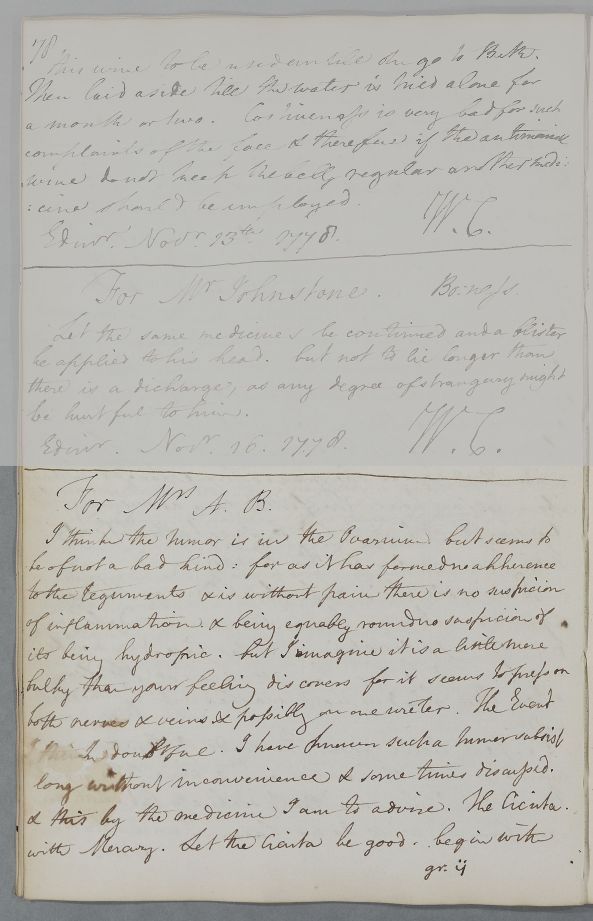 78
this wine to be used until he go to Bath.
Then laid aside till the water is tried alone for
a month or two. Costiveness is very bad for such
complaints of the face & therefore if the antimonial
wine do not keep the belly regular another medi:
:cine should be employed.
W. C.
Edinr. Novr. 13th 1778.
For Mr Johnstone. Boness
Let the same medicines be continued and a blister
be applied to his head. but not to lie longer than
there is a discharge, as any degree of strangury might
be hurtful to him.
Edinr. Novr. 16. 1778. W. C.
For Mrs A. B.
I think the tumor is in the Ovarium but seems to
be of not a bad kind: for as it has formed no adherence
to the teguments & is without pain there is no suspicion
of inflammation. & being equably round no suspicion of
its being hydropic. but I imagine it is a little more
bulky than your feeling discovers for it seems to press on
both nerves & veins & possibly on one ureter. The Event
I think doubtful. I have known such a tumor subsist
long without inconvenience & sometimes discussed.
& this by the medicine I am to advise. The Cicuta.
with Mercury. Let the Cicuta be good. begin with
gr. ij